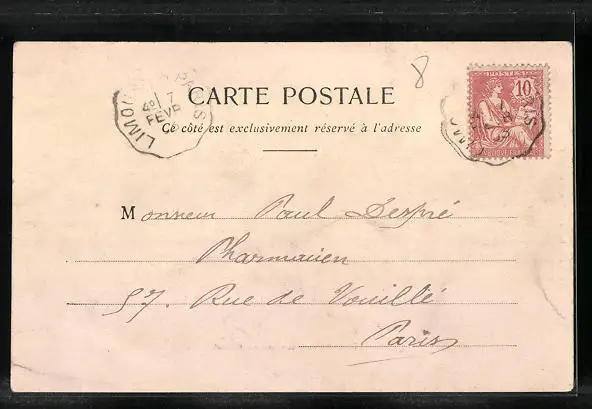 8
CARTE POSTALE
Ce côté est exclusivement réservé à l'adresse
POSTES
10
LIMO PARIS
7
FEVR
Monsieur Paul Despré
Pharmacien
57. Rue de Vouillé
Paris